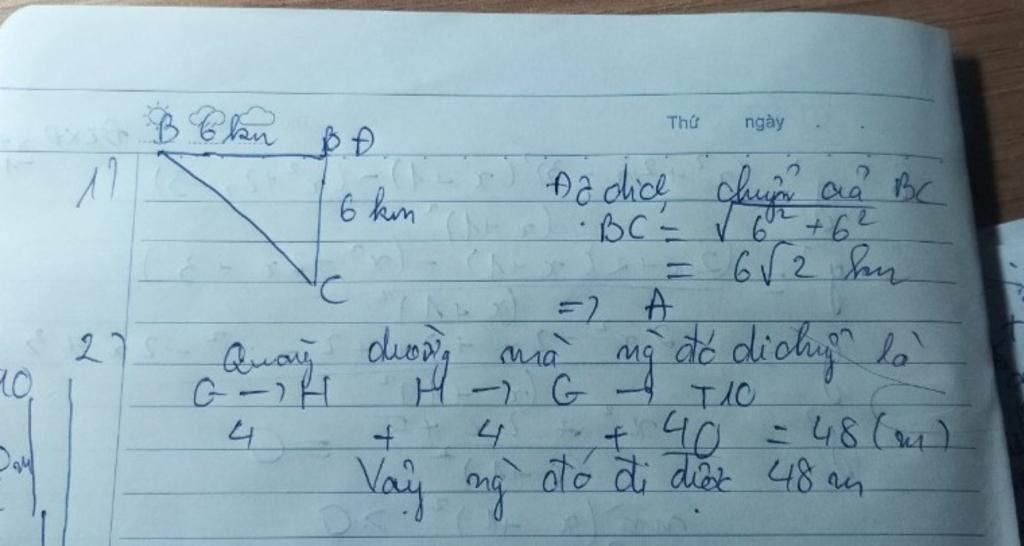 Thứ ngày
B 6 km B Đ
1)
6 km
C
Độ dịch chuyển của BC
BC = √6² + 6²
= 6√2 km
=> A
2) Quãng đường mà ng đó di chuyển là
G → H H → G → T10
4 + 4 + 40 = 48 (m)
Vậy ng đó đi được 48 m